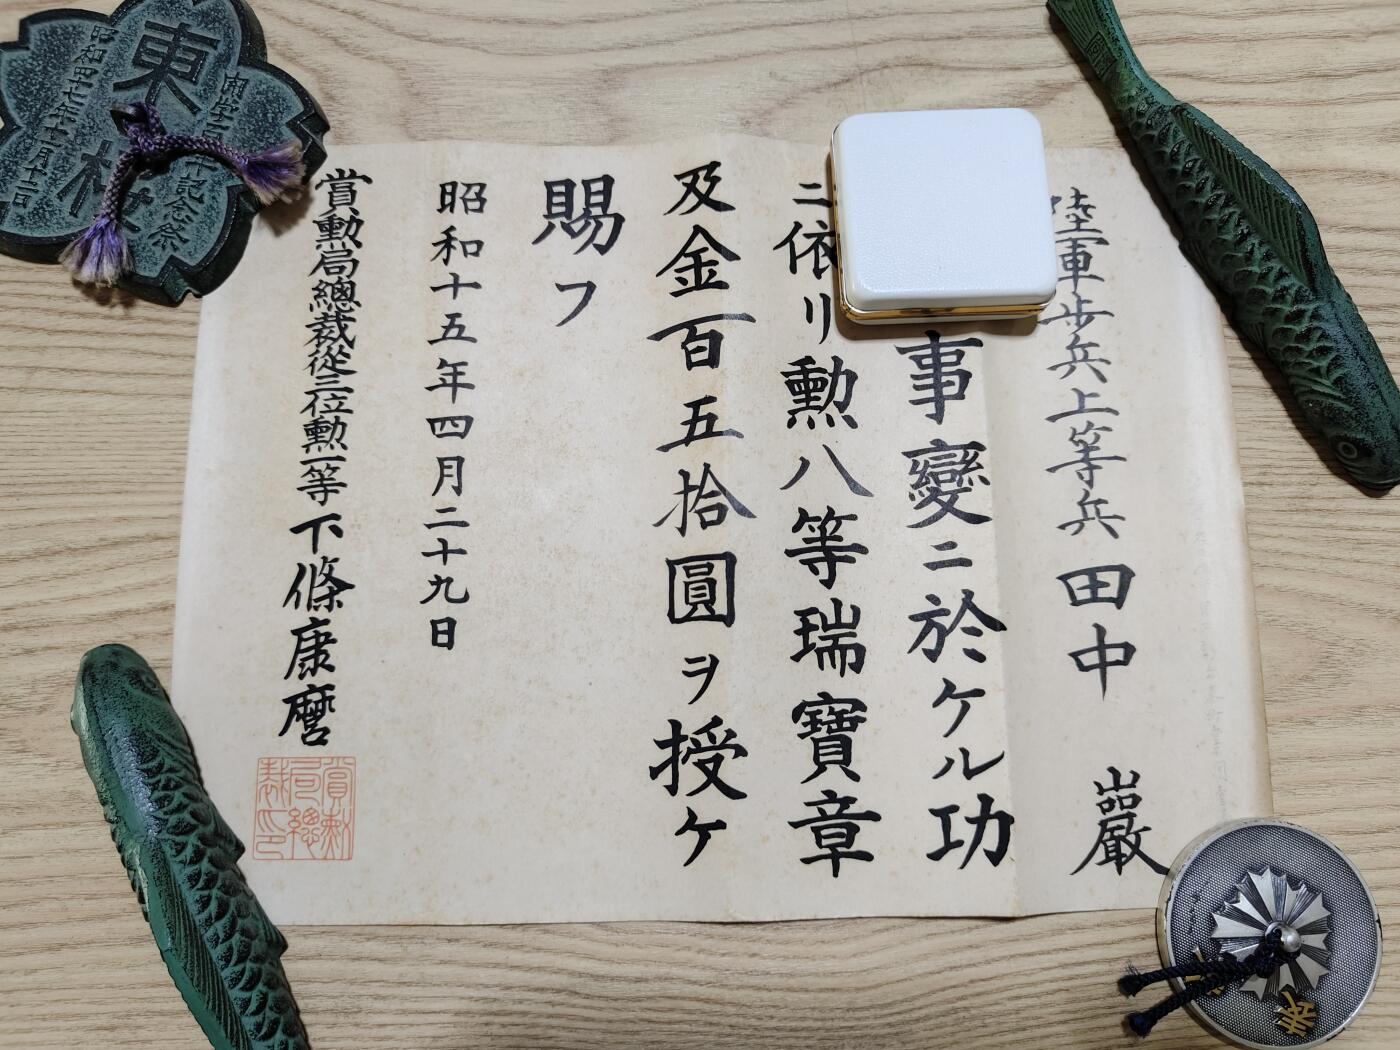 陸軍歩兵上等兵田中巖
事變ニ於ケル功
ニ依リ勲八等瑞寶章
及金百五拾圓ヲ授ケ
賜フ
昭和十五年四月二十九日
賞勲局總裁從三位勲一等下條康麿
賞勲局總裁印
東
昭和四十七年十一月十二日
記念祭